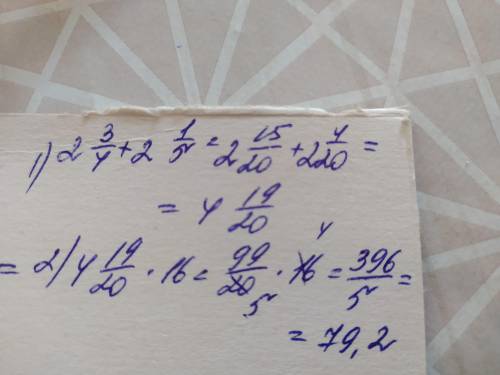 1) 2 3/4 + 2 1/5 = 2 15/20 + 2 4/20 =
= 4 19/20
= 2) 4 19/20 · 16 = 99/20 5 · 16 4 = 396/5 =
= 79,2